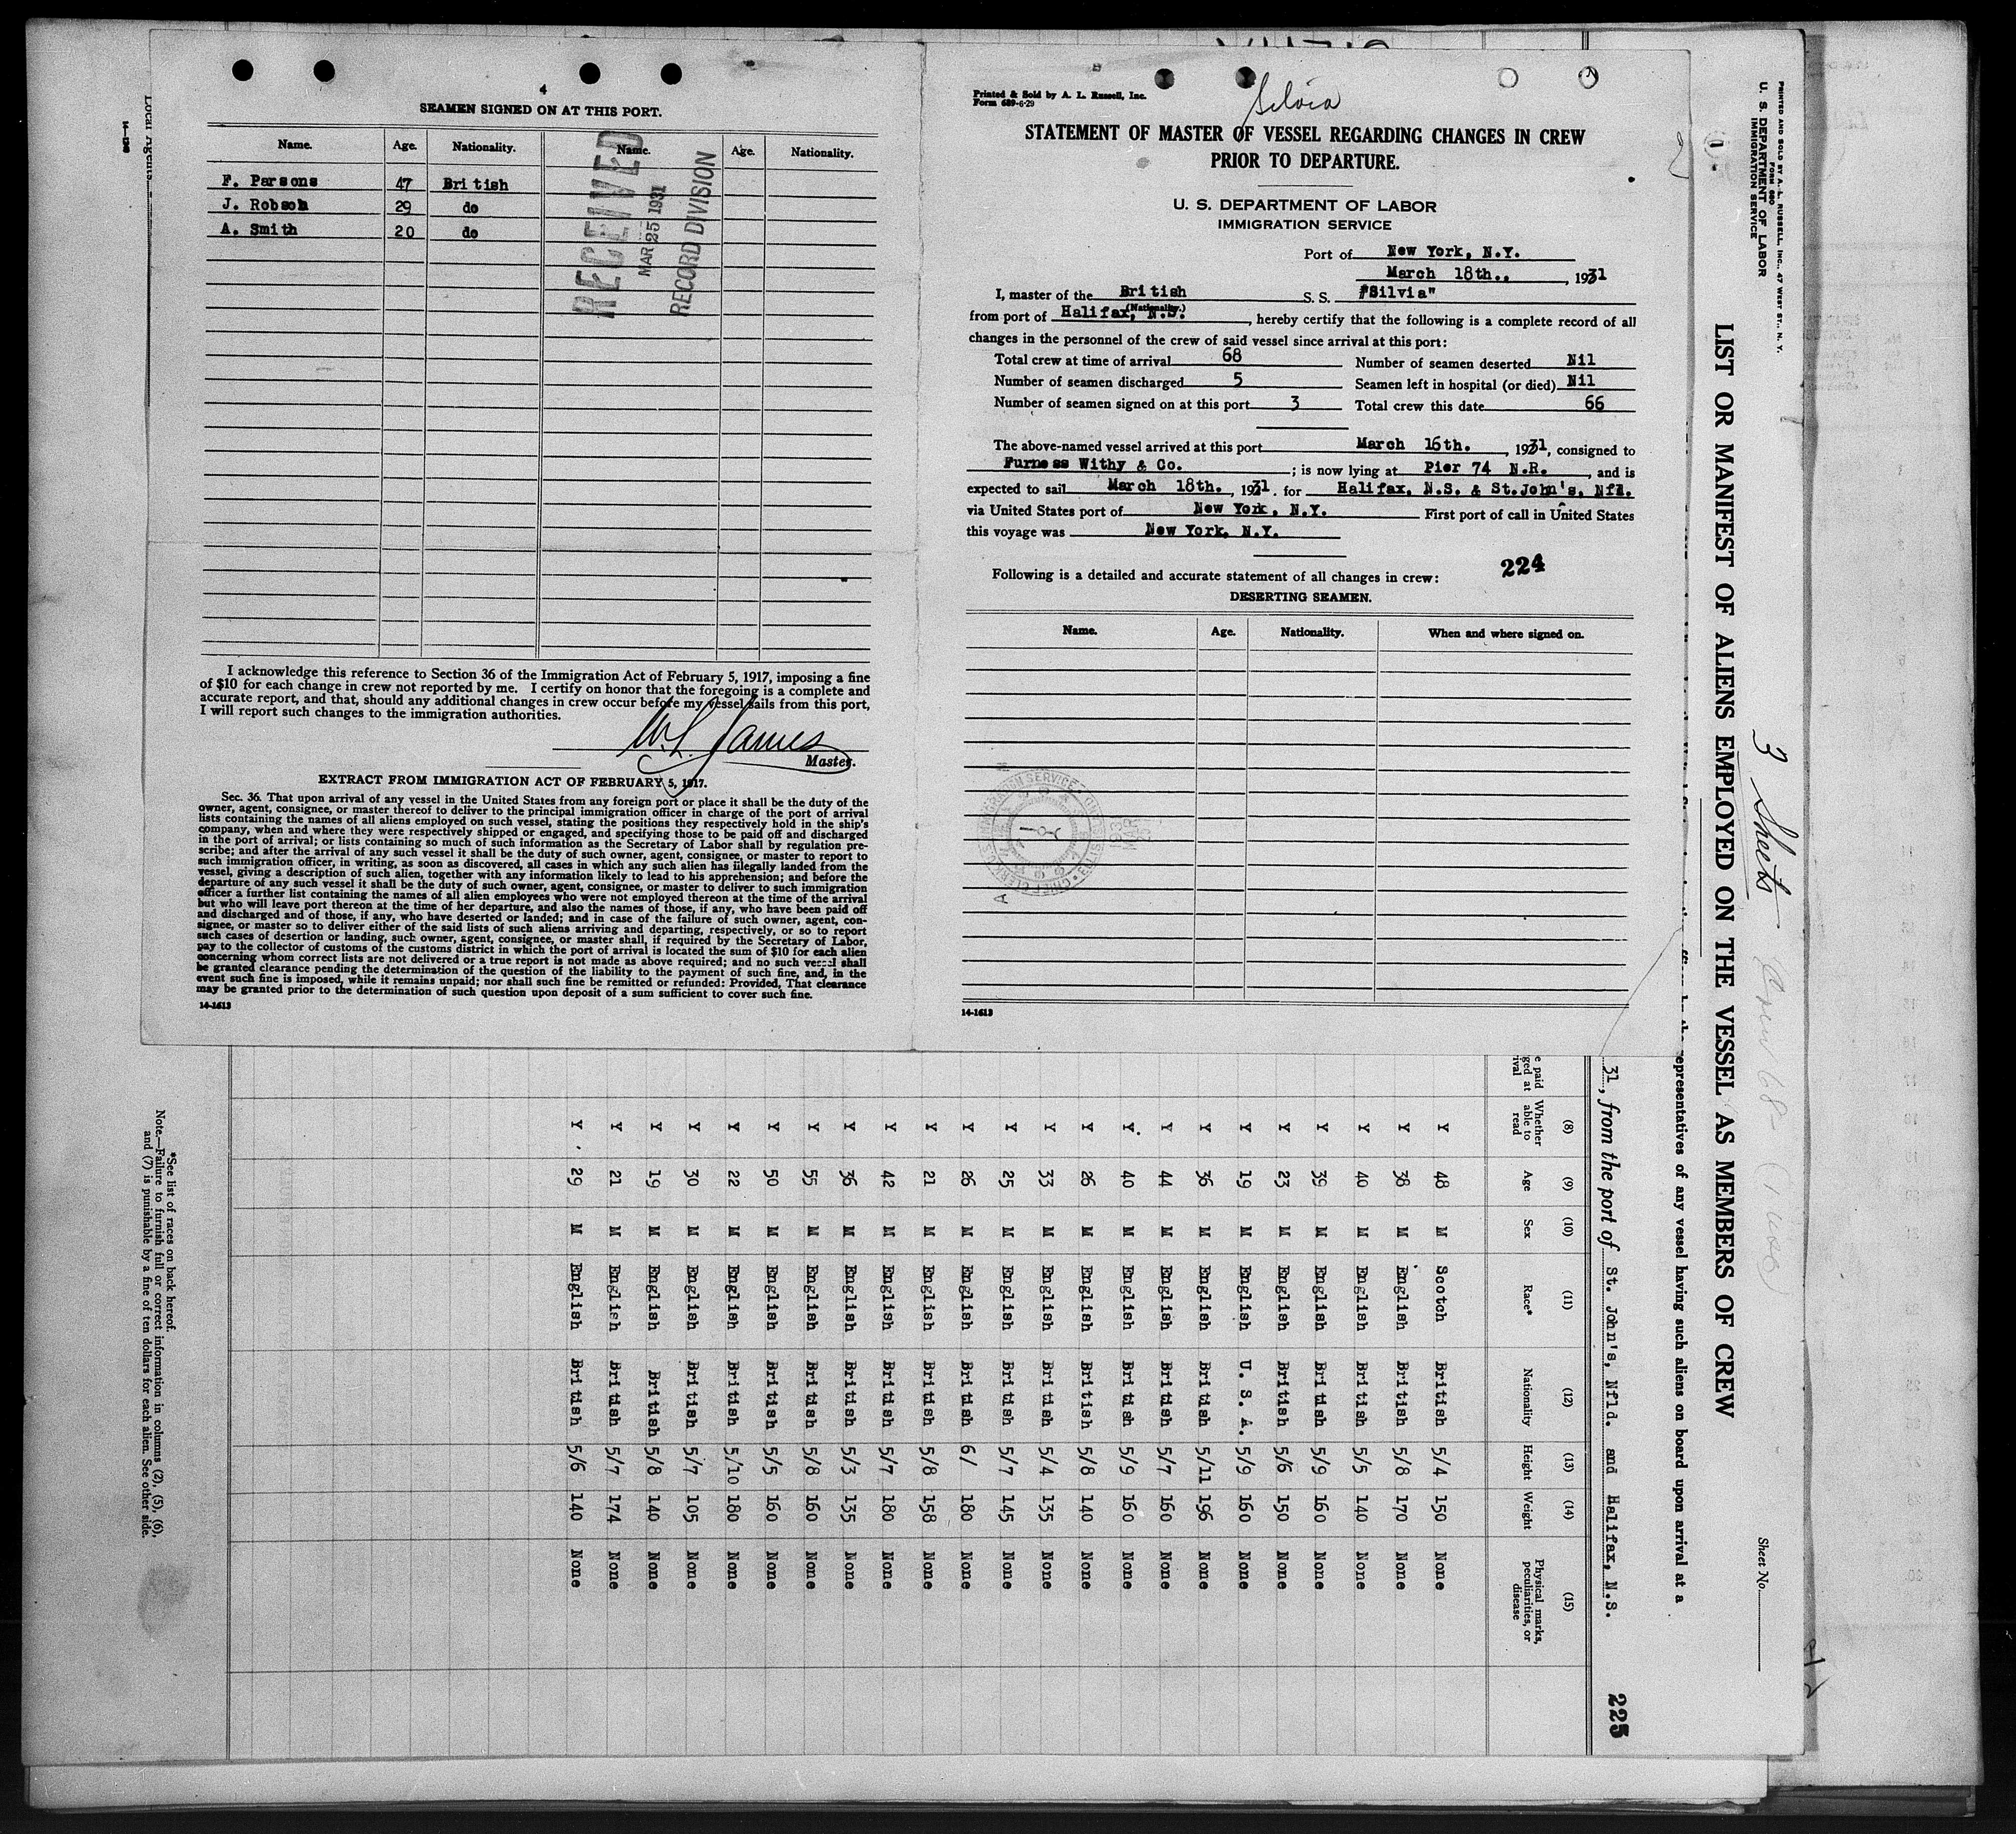 4
SEAMEN SIGNED ON AT THIS PORT.
Name. Age. Nationality. Name. Age. Nationality.
F. Parsons 47 British
J. Robson 29 do
A. Smith 20 do
RECEIVED
MAR 25 1931
RECORD DIVISION
I acknowledge this reference to Section 36 of the Immigration Act of February 5, 1917, imposing a fine
of $10 for each change in crew not reported by me. I certify on honor that the foregoing is a complete and
accurate report, and that, should any additional changes in crew occur before my vessel sails from this port,
I will report such changes to the immigration authorities.
James
Master.
EXTRACT FROM IMMIGRATION ACT OF FEBRUARY 5, 1917.
Sec. 36. That upon arrival of any vessel in the United States from any foreign port or place it shall be the duty of the
owner, agent, consignee, or master thereof to deliver to the principal immigration officer in charge of the port of arrival
lists containing the names of all aliens employed on such vessel, stating the positions they respectively hold in the ship's
company, when and where they were respectively shipped or engaged, and specifying those to be paid off and discharged
in the port of arrival; or lists containing so much of such information as the Secretary of Labor shall by regulation pre-
scribe; and after the arrival of any such vessel it shall be the duty of such owner, agent, consignee, or master to report to
such immigration officer, in writing, as soon as discovered, all cases in which any such alien has illegally landed from the
vessel, giving a description of such alien, together with any information likely to lead to his apprehension; and before the
departure of any such vessel it shall be the duty of such owner, agent, consignee, or master to deliver to such immigration
officer a further list containing the names of all alien employees who were not employed thereon at the time of the arrival
but who will leave port thereon at the time of her departure, and also the names of those, if any, who have been paid off
and discharged and of those, if any, who have deserted or landed; and in case of the failure of such owner, agent, con-
signee, or master so to deliver either of the said lists of such aliens arriving and departing, respectively, or so to report
such cases of desertion or landing, such owner, agent, consignee, or master shall, if required by the Secretary of Labor,
pay to the collector of customs of the customs district in which the port of arrival is located the sum of $10 for each alien
concerning whom correct lists are not delivered or a true report is not made as above required; and no such vessel shall
be granted clearance pending the determination of the question of the liability to the payment of such fine, and, in the
event such fine is imposed, while it remains unpaid; nor shall such fine be remitted or refunded: Provided, That clearance
may be granted prior to the determination of such question upon deposit of a sum sufficient to cover such fine.
14-1613
Printed & Sold by A. L. Russell, Inc.
Form 689-6-29
Silvia
STATEMENT OF MASTER OF VESSEL REGARDING CHANGES IN CREW
PRIOR TO DEPARTURE.
U. S. DEPARTMENT OF LABOR
IMMIGRATION SERVICE
Port of New York, N.Y.
March 18th., 1931
I, master of the British S. S. "Silvia"
(Nationality.)
from port of Halifax, N.S., hereby certify that the following is a complete record of all
changes in the personnel of the crew of said vessel since arrival at this port:
Total crew at time of arrival 68 Number of seamen deserted Nil
Number of seamen discharged 5 Seamen left in hospital (or died) Nil
Number of seamen signed on at this port 3 Total crew this date 66
The above-named vessel arrived at this port March 16th. , 1931, consigned to
Furness Withy & Co. ; is now lying at Pier 74 N.R. , and is
expected to sail March 18th. , 1931. for Halifax, N.S. & St.John's, Nfl.
via United States port of New York, N.Y. First port of call in United States
this voyage was New York, N.Y.
224
Following is a detailed and accurate statement of all changes in crew:
DESERTING SEAMEN.
Name. Age. Nationality. When and where signed on.
14-1613
PRINTED AND SOLD BY A. L. RUSSELL, INC., 47 WEST ST., N. Y.
FORM 680
U. S. DEPARTMENT OF LABOR
IMMIGRATION SERVICE
LIST OR MANIFEST OF ALIENS EMPLOYED ON THE VESSEL AS MEMBERS OF CREW
3 Sheets
Crew 68
Sheet No.
representatives of any vessel having such aliens on board upon arrival at a
31, from the port of St. John's, Nfld. and Halifax, N.S.
225
(8) (9) (10) (11) (12) (13) (14) (15)
Whether able to read Age Sex Race* Nationality Height Weight Physical marks, peculiarities, or disease
Y 48 M Scotch British 5/4 150 None
Y 38 M English British 5/8 170 None
Y 40 M English British 5/5 140 None
Y 39 M English British 5/9 160 None
Y 23 M English British 5/6 150 None
Y 19 M English U. S. A. 5/9 160 None
Y 36 M English British 5/11 196 None
Y 44 M English British 5/7 160 None
Y. 40 M English British 5/9 160 None
Y 26 M English British 5/8 140 None
Y 33 M English British 5/4 135 None
Y 25 M English British 5/7 145 None
Y 26 M English British 6/ 180 None
Y 21 M English British 5/8 158 None
Y 42 M English British 5/7 180 None
Y 36 M English British 5/3 135 None
Y 55 M English British 5/8 160 None
Y 50 M English British 5/5 160 None
Y 22 M English British 5/10 180 None
Y 30 M English British 5/7 105 None
Y 19 M English British 5/8 140 None
Y 21 M English British 5/7 174 None
Y 29 M English British 5/6 140 None
*See list of races on back hereof.
Note.—Failure to furnish full or correct information in columns (2), (5), (6),
and (7) is punishable by a fine of ten dollars for each alien. See other side.
Local Agents